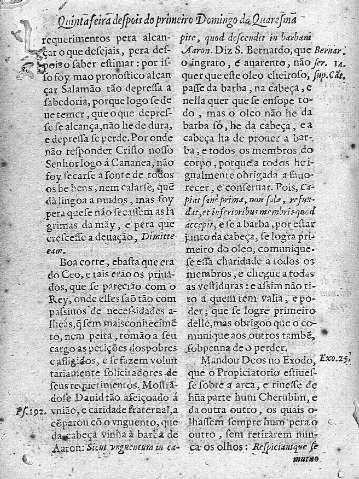 Quinta feira despois do primeiro Domingo da Quaresma
requerimentos pera alcan-
çar o que desejais, pera des-
pois o saber estimar: por is-
so foy mao pronostico alcan
çar Salamão tão depressa a
sabedoria, porque logo se de
ue temer, que o que depres-
se se alcança, não lhe de dura,
e depressa se perde. Por onde
não responder Cristo nosso
Senhor logo á Cananea, não
foy secarse a fonte de todos
os bens, nem calarse, quẽ
dá lingoa a mudos, mas foy
pera que se não secassem as la
grimas da mãy, e pera que
crescesse a deuação, Dimitte
eam.
Boa corte, e basta que era
do Ceo, e tais erão os priua-
dos, que se parecião com o
Rey, onde elles são tão com
passiuos de necessidades a-
lheas, q̃ sem mais conhecimẽ
to, nem peita, tomão a seu
cargo as petições dos pobres
e affligidos, e se fazem volun
tariamente solicitadores de
seus requerimentos. Mostrã-
dose Dauid tão afeiçoado á
Ps. 192. vnião, e caridade fraternal, a
cõparou cõ o vnguento, que
da cabeça vinha á barba de
Aaron: Sicut vnguentum in ca-
pite, quod descendit in barbam
Aaron. Diz S. Bernardo, que Bernar.
o ingrato, e auarento, não ser. 14.
quer que este oleo cheiroso, sup. Cãt.
passe da barba, na cabeça, e
nella quer que se ensope to-
do, mas o oleo não he da
barba só, he da cabeça, e a
cabeça ha de prouer a bar-
ba, e todos os membros do
corpo, porque a todos he i-
gualmente obrigada a fauo-
recer, e conseruar. Pois,
accepit, e se a barba, por estar
junto da cabeça, se logra pri-
meiro do oleo, comunique-
se essa charidade a todos os
membros, e chegue a todas
as vestiduras: e assim não ti-
ro a quem tem valia, e po-
der; que se logre primeiro
delle, mas obrigoo que o co-
munique aos outros tambẽ,
sob pena de o perder.
Mandou Deos no Exodo, Exo. 25.
que o Propiciatorio estiues-
se sobre a arca, e tiuesse de
hũa parte hum Cherubim, e
da outra outro, os quais o-
lhassem sempre hum pera o
outro, sem retirarem nun-
ca os olhos: Respiciantque se
mutuo